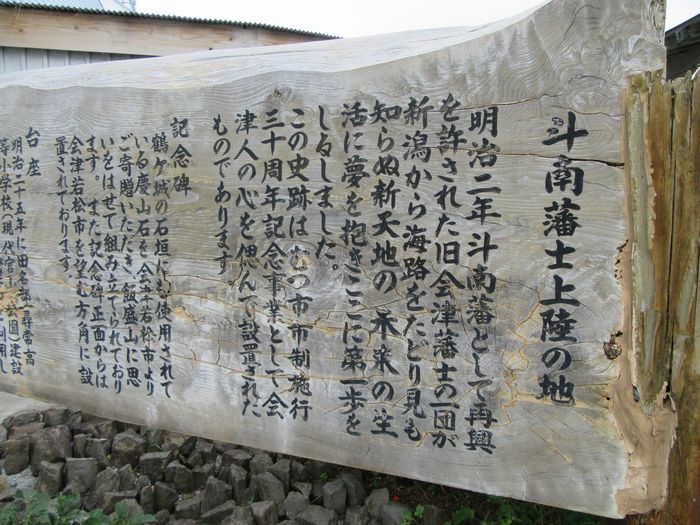 斗南藩士上陸の地
明治二年斗南藩として再興
を許された旧会津藩士の一団が
新潟から海路をたどり見も
知らぬ新天地の未来の生
活に夢を抱きここに第一歩を
しるしました。
この史跡はむつ市市制施行
三十周年記念事業として会
津人の心を偲んで設置された
ものであります。
記念碑
鶴ケ城の石垣にも使用されて
いる慶山石を会津若松市より
ご寄贈いただき、飯盛山に思
いをはせて組み立てられており
ます。また記念碑正面からは
会津若松市を望む方角に設
置されております。
台座
明治二十五年に田名部尋常高
等小学校(現代官山公園)建設
利用し